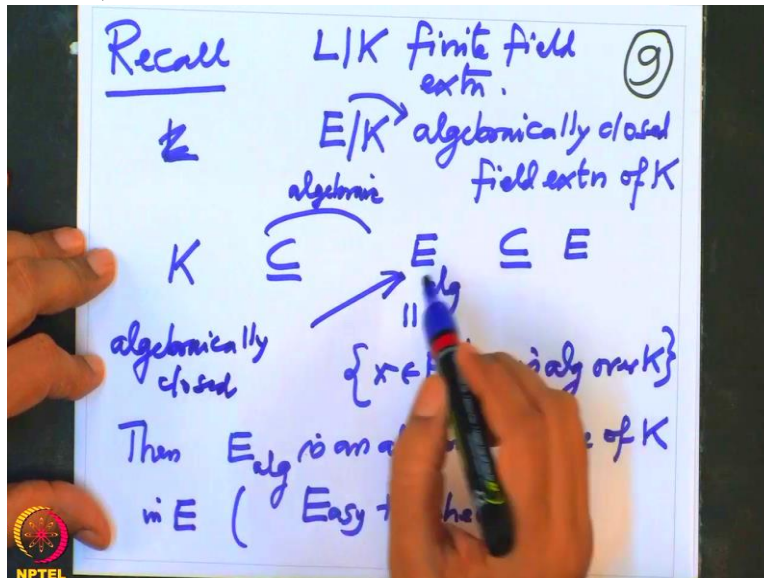 Recall L|K finite field
extn. 9
E|K algebraically closed
algebraic field extn of K
K ⊆ E alg ⊆ E
algebraically
closed
{x ∈ alg over K}
Then E alg is an of K
in E ( Easy
NPTEL